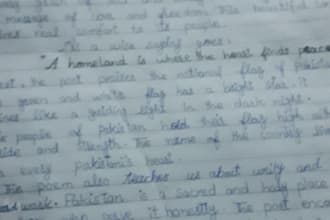 message of love and freedom. This beautiful
real comfort to its people.
As a wise saying goes:
"A homeland is where the heart finds peace
the poet praises the national flag of Pakistan
green and white flag has a bright star. It
like a guiding light in the dark night.
people of Pakistan hold their flag high with
and strength. The name of the country
every Pakistani's heart.
The poem also teaches us about unity and
work. Pakistan is a sacred and holy place
who serve it honestly. The poet